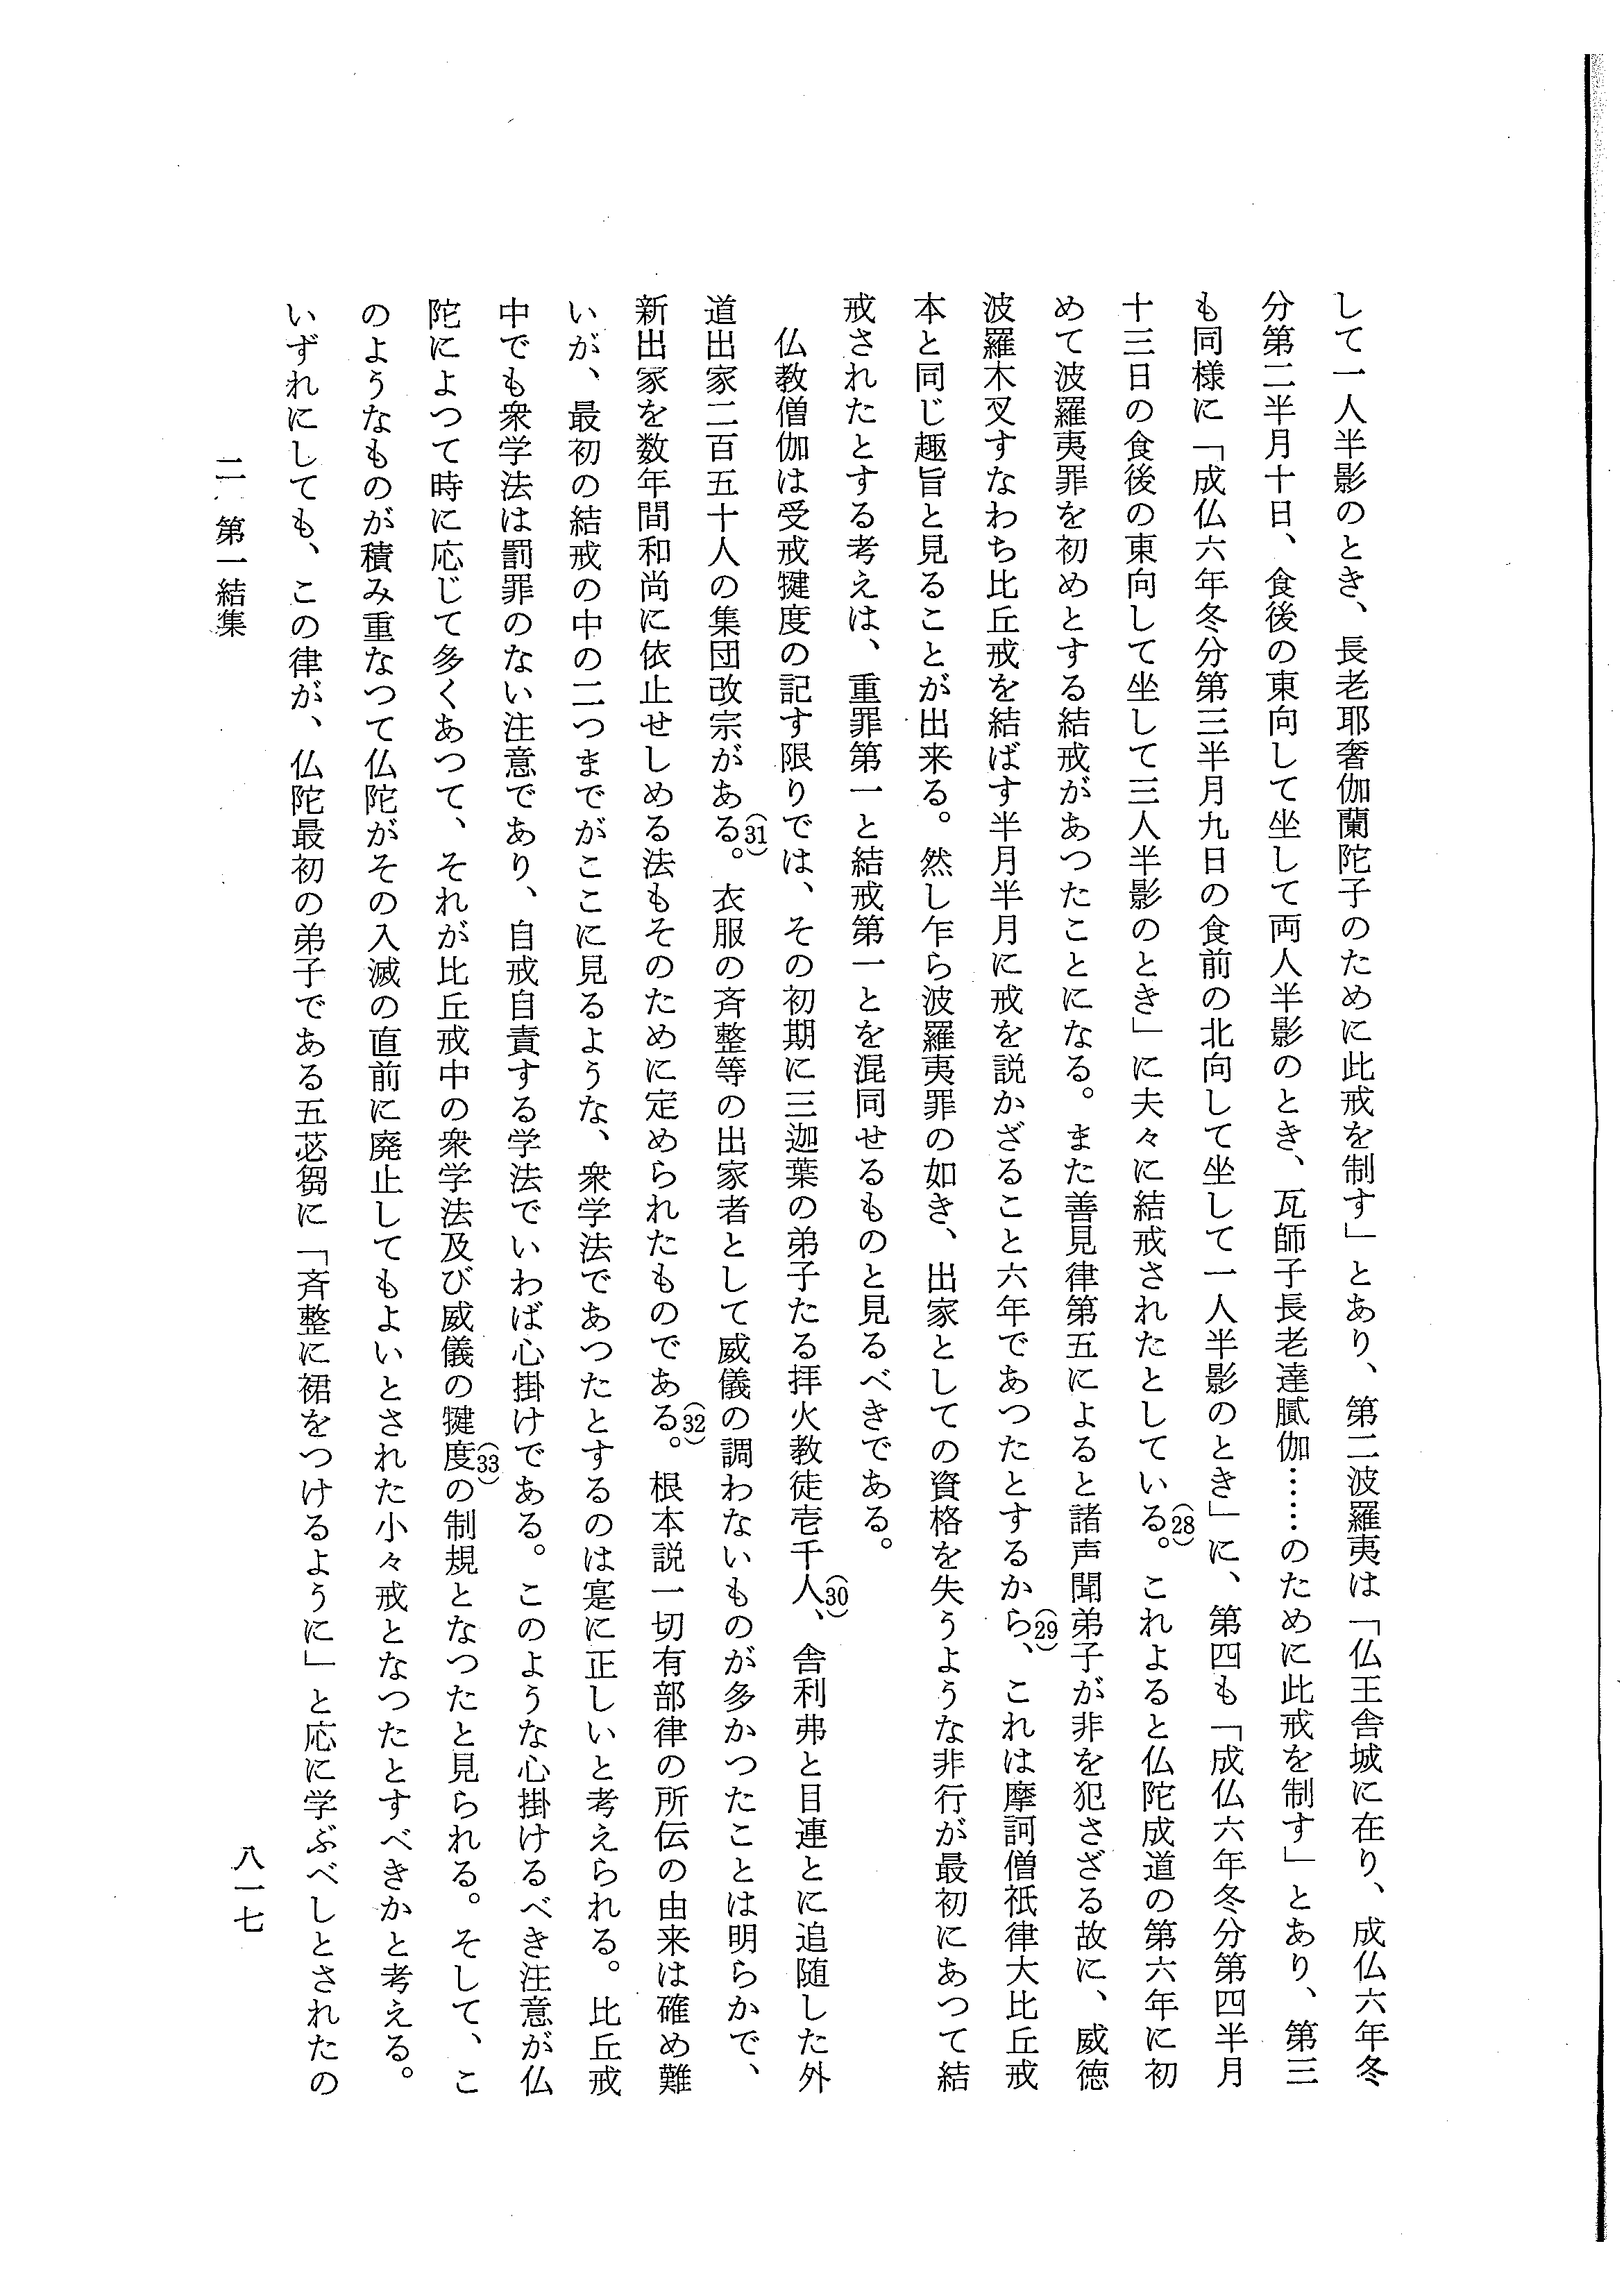 して一人半影のとき、長老耶奢伽蘭陀子のために此戒を制す」とあり、第二波羅夷は「仏王舎城に在り、成仏六年冬
分第二半月十日、食後の東向して坐して両人半影のとき、瓦師子長老達膩伽……のために此戒を制す」とあり、第三
も同様に「成仏六年冬分第三半月九日の食前の北向して坐して一人半影のとき」に、第四も「成仏六年冬分第四半月
十三日の食後の東向して坐して三人半影のとき」に夫々に結戒されたとしている。(28)これよると仏陀成道の第六年に初
めて波羅夷罪を初めとする結戒があつたことになる。また善見律第五によると諸声聞弟子が非を犯さざる故に、威徳
波羅木叉すなわち比丘戒を結ばす半月半月に戒を説かざること六年であつたとするから、(29)これは摩訶僧祇律大比丘戒
本と同じ趣旨と見ることが出来る。然し乍ら波羅夷罪の如き、出家としての資格を失うような非行が最初にあつて結
戒されたとする考えは、重罪第一と結戒第一とを混同せるものと見るべきである。
仏教僧伽は受戒犍度の記す限りでは、その初期に三迦葉の弟子たる拝火教徒壱千人、(30)舎利弗と目連とに追随した外
道出家二百五十人の集団改宗がある。(31)衣服の斉整等の出家者として威儀の調わないものが多かつたことは明らかで、
新出家を数年間和尚に依止せしめる法もそのために定められたものである。(32)根本説一切有部律の所伝の由来は確め難
いが、最初の結戒の中の二つまでがここに見るような、衆学法であつたとするのは寔に正しいと考えられる。比丘戒
中でも衆学法は罰罪のない注意であり、自戒自責する学法でいわば心掛けである。このような心掛けるべき注意が仏
陀によつて時に応じて多くあつて、それが比丘戒中の衆学法及び威儀の犍度(33)の制規となつたと見られる。そして、こ
のようなものが積み重なつて仏陀がその入滅の直前に廃止してもよいとされた小々戒となつたとすべきかと考える。
いずれにしても、この律が、仏陀最初の弟子である五苾芻に「斉整に裙をつけるように」と応に学ぶべしとされたの
二 第一結集
八一七